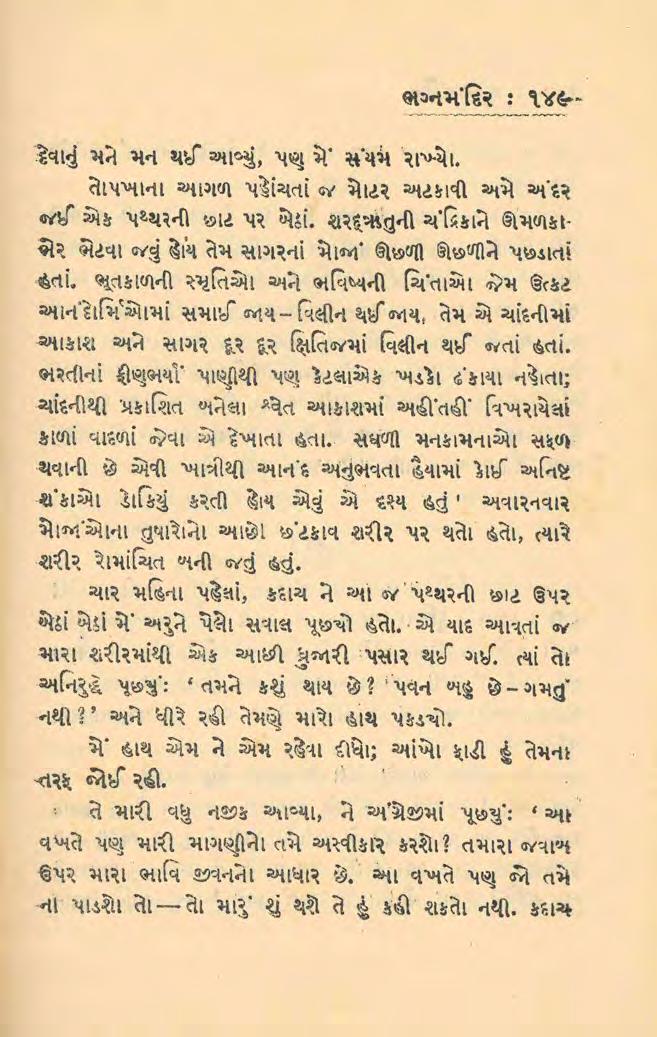 ભગ્નમંદિર : ૧૪૯
દેવાનું મને મન થઈ આવ્યું, પણ મેં સંયમ રાખ્યો.
તોપખાના આગળ પહોંચતાં જ મોટર અટકાવી અમે અંદર
જઈ એક પથ્થરની છાટ પર બેઠાં. શરદ્ઋતુની ચંદ્રિકાને ઊમળકા-
ભેર ભેટવા જવું હોય તેમ સાગરનાં મોજાં ઊછળી ઊછળીને પછડાતાં
હતાં. ભૂતકાળની સ્મૃતિઓ અને ભવિષ્યની ચિંતાઓ જેમ ઉત્કટ
આનંદોર્મિઓમાં સમાઈ જાય – વિલીન થઈ જાય, તેમ એ ચાંદનીમાં
આકાશ અને સાગર દૂર દૂર ક્ષિતિજમાં વિલીન થઈ જતાં હતાં.
ભરતીનાં ફીણભર્યાં પાણીથી પણ કેટલાએક ખડકો ઢંકાયા નહોતા;
ચાંદનીથી પ્રકાશિત બનેલા શ્વેત આકાશમાં અહીંતહીં વિખરાયેલાં
કાળાં વાદળાં જેવા એ દેખાતા હતા. સઘળી મનકામનાઓ સફળ
થવાની છે એવી ખાત્રીથી આનંદ અનુભવતા હૈયામાં કોઈ અનિષ્ટ
શંકાઓ ડોકિયું કરતી હોય એવું એ દૃશ્ય હતું ! અવારનવાર
મોજાંઓના તુષારોનો આછો છંટકાવ શરીર પર થતો હતો, ત્યારે
શરીર રોમાંચિત બની જતું હતું.
ચાર મહિના પહેલાં, કદાચ ને આ જ પથ્થરની છાટ ઉપર
બેઠાં બેઠાં મેં અરુને પેલો સવાલ પૂછ્યો હતો. એ યાદ આવતાં જ
મારા શરીરમાંથી એક આછી ધ્રુજારી પસાર થઈ ગઈ. ત્યાં તો
અનિરુદ્ધે પૂછ્યું: ‘ તમને કશું થાય છે ? પવન બહુ છે – ગમતું
નથી ?’ અને ધીરે રહી તેમણે મારો હાથ પકડ્યો.
મેં હાથ એમ ને એમ રહેવા દીધો; આંખો ફાડી હું તેમના
તરફ જોઈ રહી.
તે મારી વધુ નજીક આવ્યા, ને અંગ્રેજીમાં પૂછ્યું: ‘ આ
વખતે પણ મારી માગણીનો તમે અસ્વીકાર કરશો? તમારા જવાબ
ઉપર મારા ભાવિ જીવનનો આધાર છે. આ વખતે પણ જો તમે
ના પાડશો તો — તો મારું શું થશે તે હું કહી શકતો નથી. કદાચ